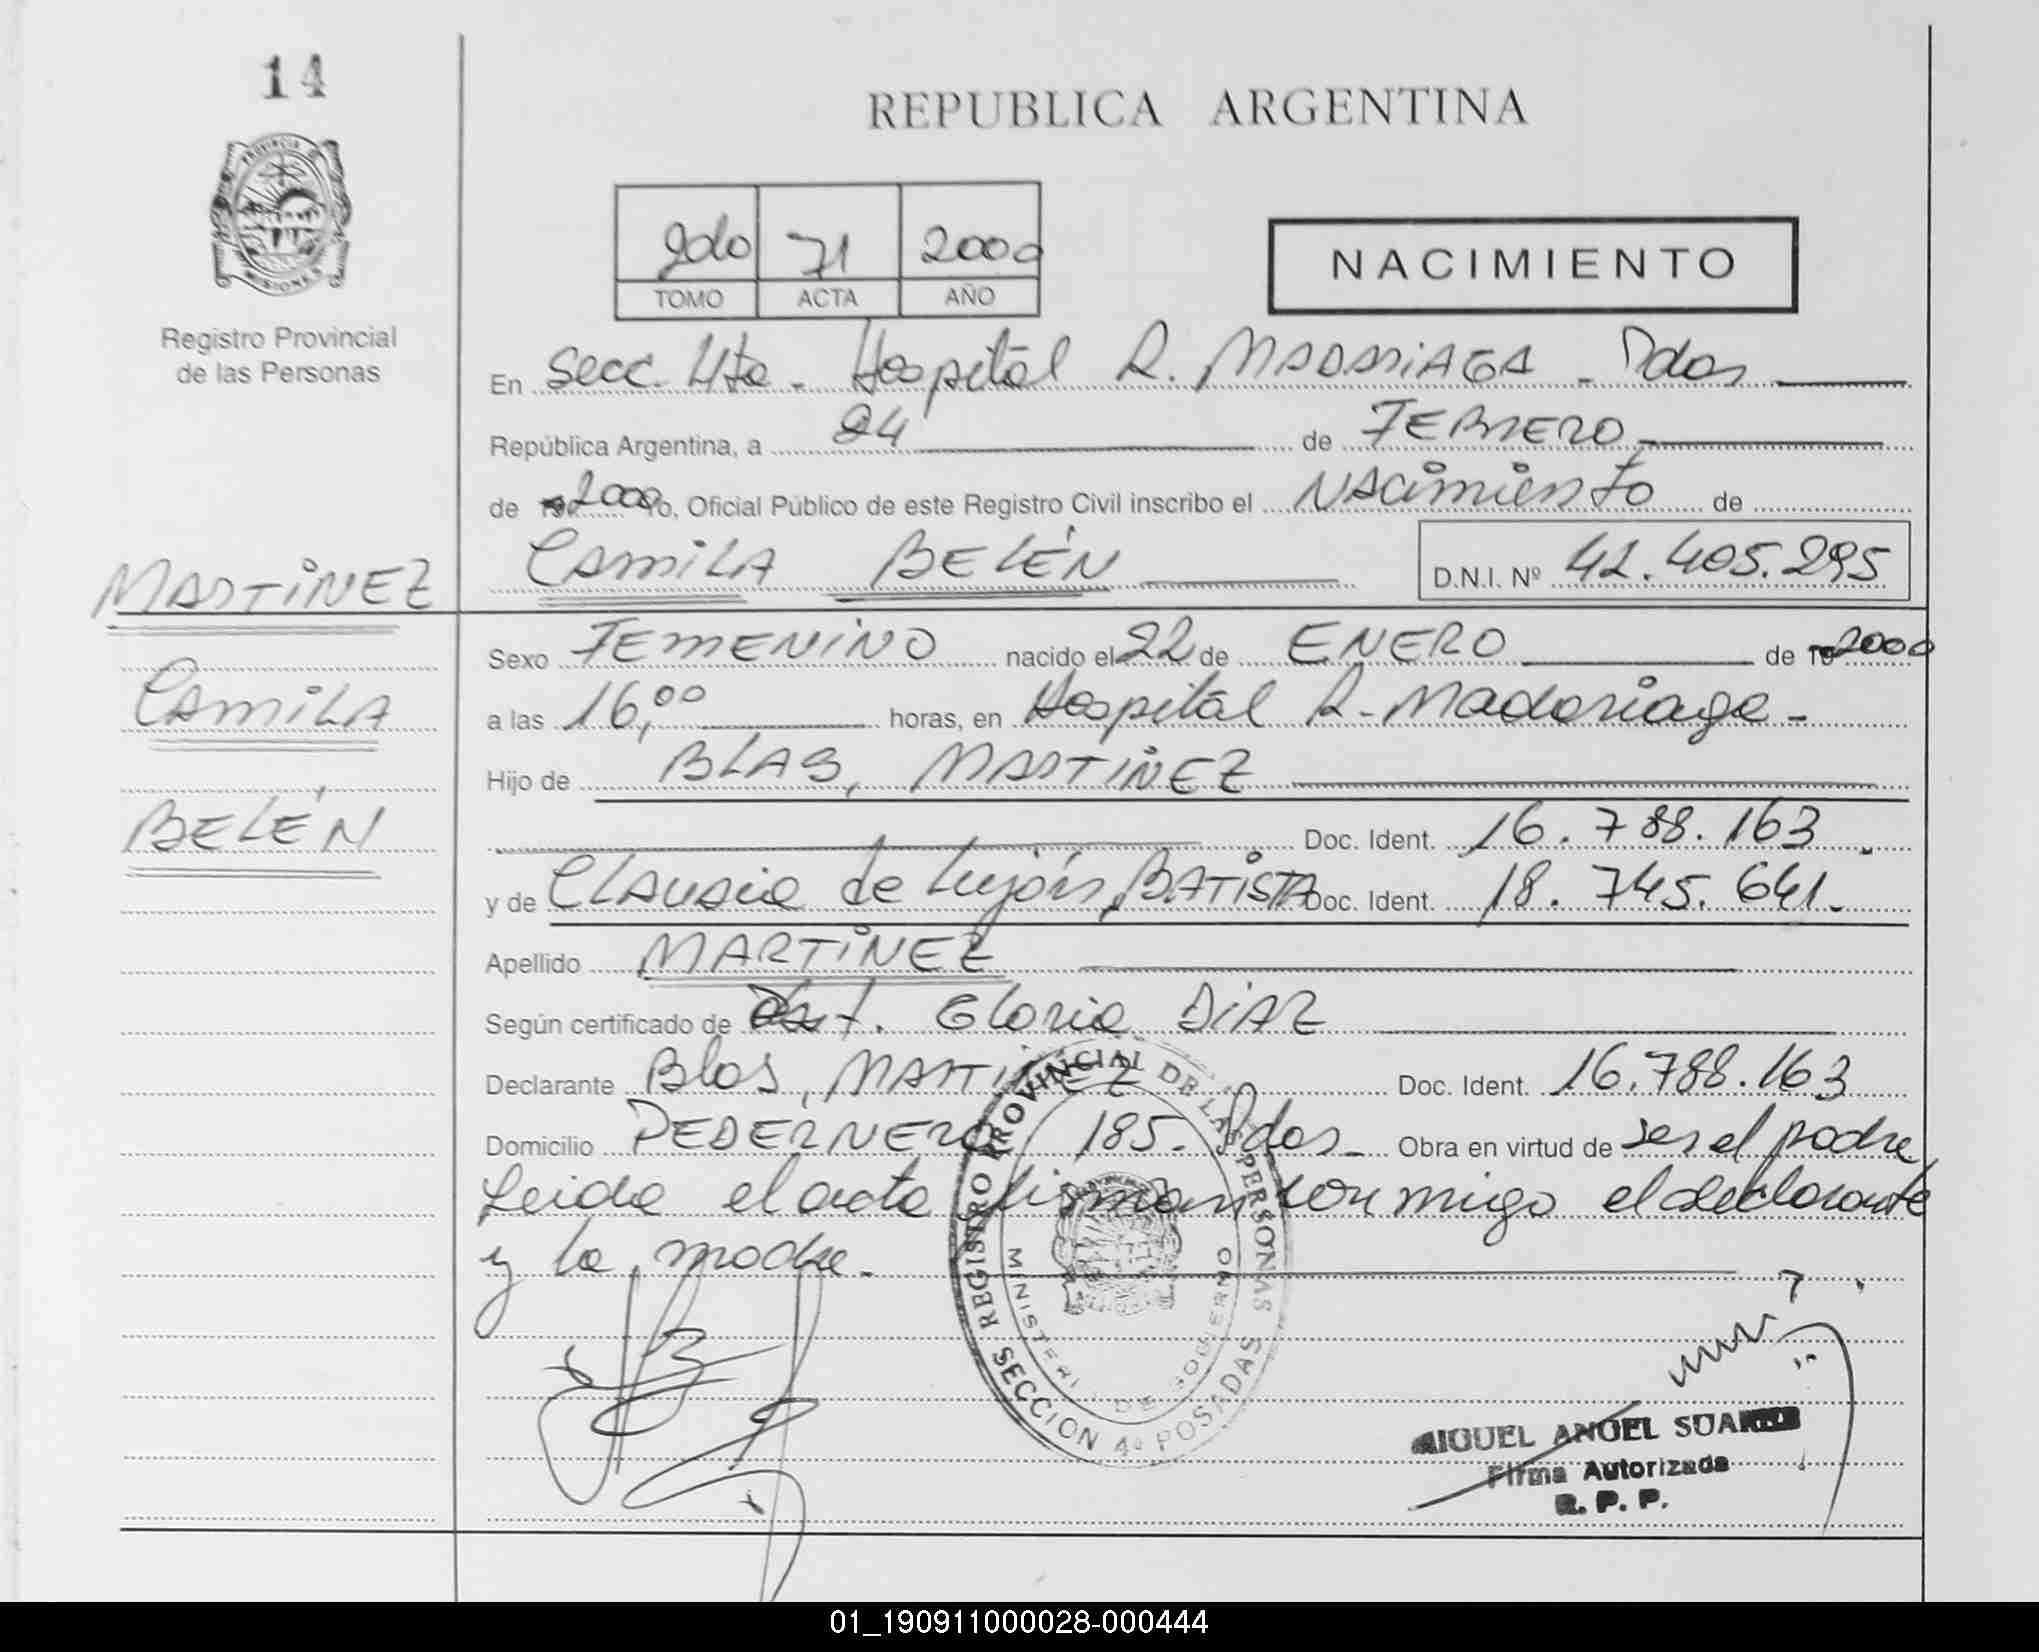 14
REPUBLICA ARGENTINA
PROVINCIA D
MISIONES
Registro Provincial
de las Personas
2do 71 2000
TOMO ACTA AÑO
NACIMIENTO
En Secc. 4ta - Hospital R. MADARIAGA - Pdas
República Argentina, a 24 de FEBRERO
de 19 2000 Yo, Oficial Público de este Registro Civil inscribo el NACIMIENTO de
CAMILA BELÉN D.N.I. Nº 42.405.295
MARTINEZ
CAMILA
BELÉN
Sexo FEMENINO nacido el 22 de ENERO de 19 2000
a las 16,00 horas, en Hospital R. Madariaga -
Hijo de BLAS, MARTINEZ
Doc. Ident. 16.788.163
y de CLAUDIA de Luján, BATISTA Doc. Ident. 18.745.641.
Apellido MARTINEZ
Según certificado de Gloria DIAZ
Declarante Blas, MARTINEZ Doc. Ident. 16.788.163
Domicilio PEDERNERA 185. Pdas - Obra en virtud de ser el padre
Leida el acta firman conmigo el declarante
y la madre.
REGISTRO PROVINCIAL DE LAS PERSONAS
MINISTERI DE GOBIERNO
SECCION 4ª POSADAS
MIGUEL ANGEL SUAREZ
Firma Autorizada
R. P. P.
01_190911000028-000444